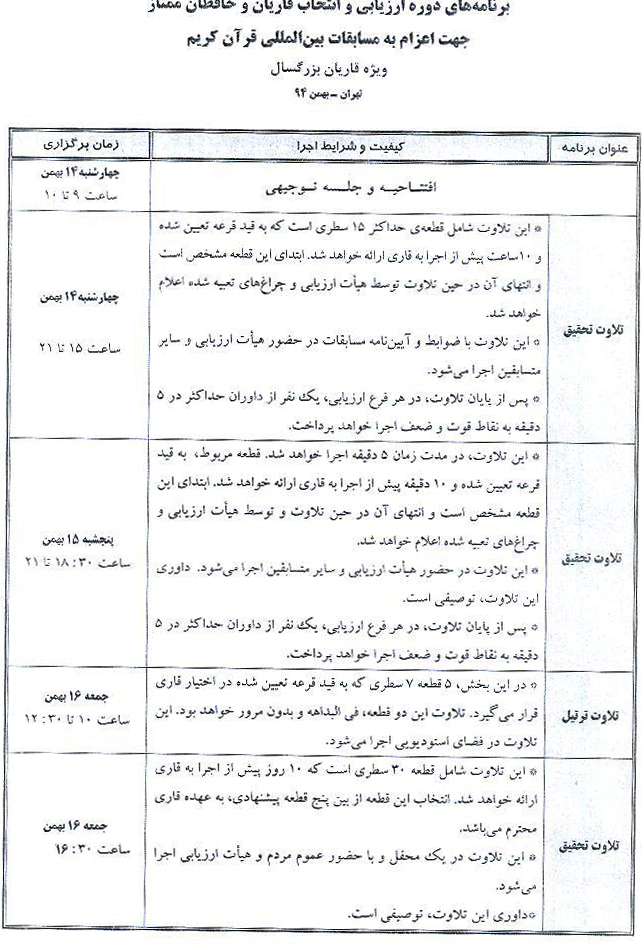 برنامه‌های دوره ارزیابی و انتخاب قاریان و حافظان ممتاز
جهت اعزام به مسابقات بین‌المللی قرآن کریم
ویژه قاریان بزرگسال
تهران – بهمن ۹۴
عنوان برنامه
کیفیت و شرایط اجرا
زمان برگزاری
افتتاحیه و جلسه توجیهی
چهارشنبه ۱۴ بهمن
ساعت ۹ تا ۱۰
تلاوت تحقیق
* این تلاوت شامل قطعه‌ی حداکثر ۱۵ سطری است که به قید قرعه تعیین شده
و ۱۰ ساعت پیش از اجرا به قاری ارائه خواهد شد. ابتدای این قطعه مشخص است
و انتهای آن در حین تلاوت توسط هیأت ارزیابی و چراغ‌های تعبیه شده اعلام
خواهد شد.
* این تلاوت با ضوابط و آیین‌نامه مسابقات در حضور هیأت ارزیابی و سایر
متسابقین اجرا می‌شود.
* پس از پایان تلاوت، در هر فرع ارزیابی، یک نفر از داوران حداکثر در ۵
دقیقه به نقاط قوت و ضعف اجرا خواهد پرداخت.
چهارشنبه ۱۴ بهمن
ساعت ۱۵ تا ۲۱
تلاوت تحقیق
* این تلاوت، در مدت زمان ۵ دقیقه اجرا خواهد شد. قطعه مربوط، به قید
قرعه تعیین شده و ۱۰ دقیقه پیش از اجرا به قاری ارائه خواهد شد. ابتدای این
قطعه مشخص است و انتهای آن در حین تلاوت و توسط هیأت ارزیابی و
چراغ‌های تعبیه شده اعلام خواهد شد.
* این تلاوت در حضور هیأت ارزیابی و سایر متسابقین اجرا می‌شود. داوری
این تلاوت، توصیفی است.
* پس از پایان تلاوت، در هر فرع ارزیابی، یک نفر از داوران حداکثر در ۵
دقیقه به نقاط قوت و ضعف اجرا خواهد پرداخت.
پنجشبه ۱۵ بهمن
ساعت ۱۸:۳۰ تا ۲۱
تلاوت ترتیل
* در این بخش، ۵ قطعه ۷ سطری که به قید قرعه تعیین شده در اختیار قاری
قرار می‌گیرد. تلاوت این دو قطعه، فی البداهه و بدون مرور خواهد بود. این
تلاوت در فضای استودیویی اجرا می‌شود.
جمعه ۱۶ بهمن
ساعت ۱۰ تا ۱۲:۳۰
تلاوت تحقیق
* این تلاوت شامل قطعه ۳۰ سطری است که ۱۰ روز پیش از اجرا به قاری
ارائه خواهد شد. انتخاب این قطعه از بین پنج قطعه پیشنهادی، به عهده قاری
محترم می‌باشد.
* این تلاوت در یک محفل و با حضور عموم مردم و هیأت ارزیابی اجرا
می‌شود.
*داوری این تلاوت، توصیفی است.
جمعه ۱۶ بهمن
ساعت ۱۶:۳۰